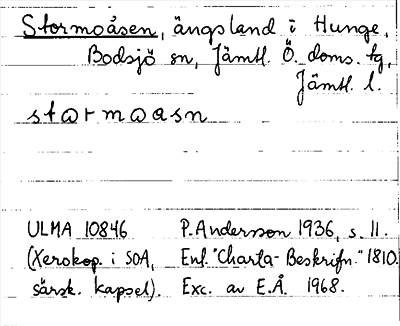 Stormoåsen, ängsland i Hunge,
Bodsjö sn, Jämtl. Ö. doms. tg,
Jämtl. l.
stɷrmɷasn
ULMA 10846 P. Andersson 1936, s. 11.
(Xerokop. i SOA, Enl. "Charta-Beskrifn." 1810.
särsk. kapsel). Exc. av E.Å. 1968.